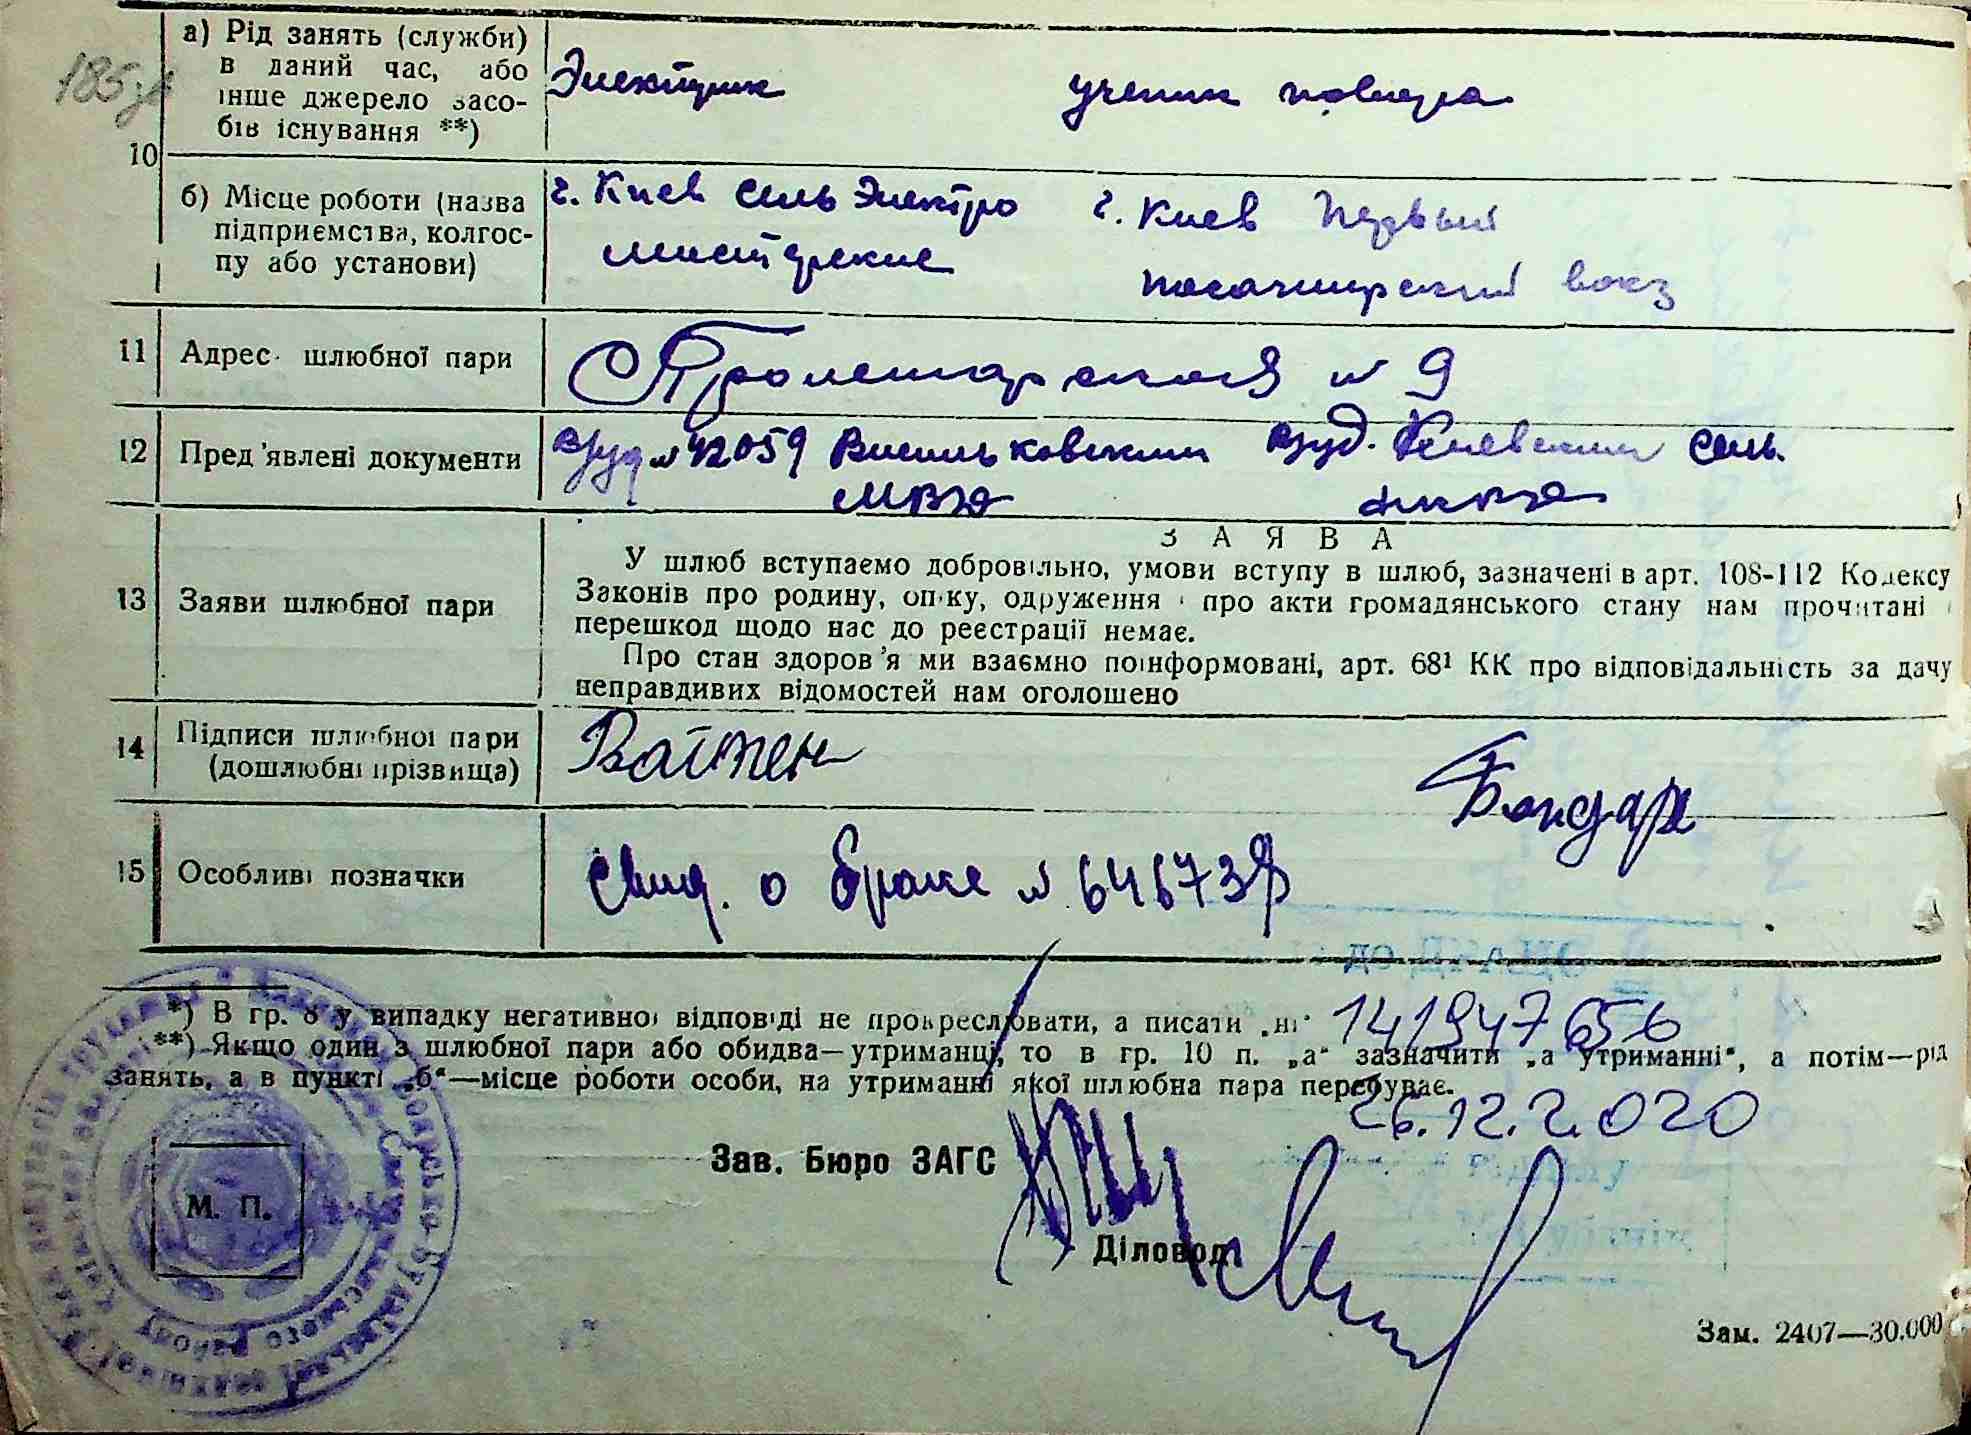 185зв
а) Рід занять (служби)
в даний час, або
інше джерело засо-
бів існування **)
Электрик
ученик повара
10
б) Місце роботи (назва
підприємства, колгос-
пу або установи)
г. Киев Сель Электро
мастерские
г. Киев Первый
пасажирский вокз
11 Адрес шлюбної пари
Пролетарская № 9
12 Пред'явлені документи
№ 42059 Васильковским
МВЗ
Киевским сель.
13 Заяви шлюбної пари
ЗАЯВА
У шлюб вступаємо добровільно, умови вступу в шлюб, зазначені в арт. 108-112 Кодексу
Законів про родину, опіку, одруження і про акти громадянського стану нам прочитані і
перешкод щодо нас до реєстрації немає.
Про стан здоров'я ми взаємно поінформовані, арт. 68¹ КК про відповідальність за дачу
неправдивих відомостей нам оголошено
14 Підписи шлюбної пари
(дошлюбні прізвища)
Бондарь
15 Особливі позначки
Свид. о браке №
*) В гр. 8 у випадку негативної відповіді не прокреслювати, а писати „ні"
**) Якщо один з шлюбної пари або обидва—утриманці, то в гр. 10 п. „а" зазначити „а утриманні", а потім—рід
занять, а в пункті „б"—місце роботи особи, на утриманні якої шлюбна пара перебуває.
26.12.2020
Зав. Бюро ЗАГС
М. П.
Діловод
Зам. 2407—30.000